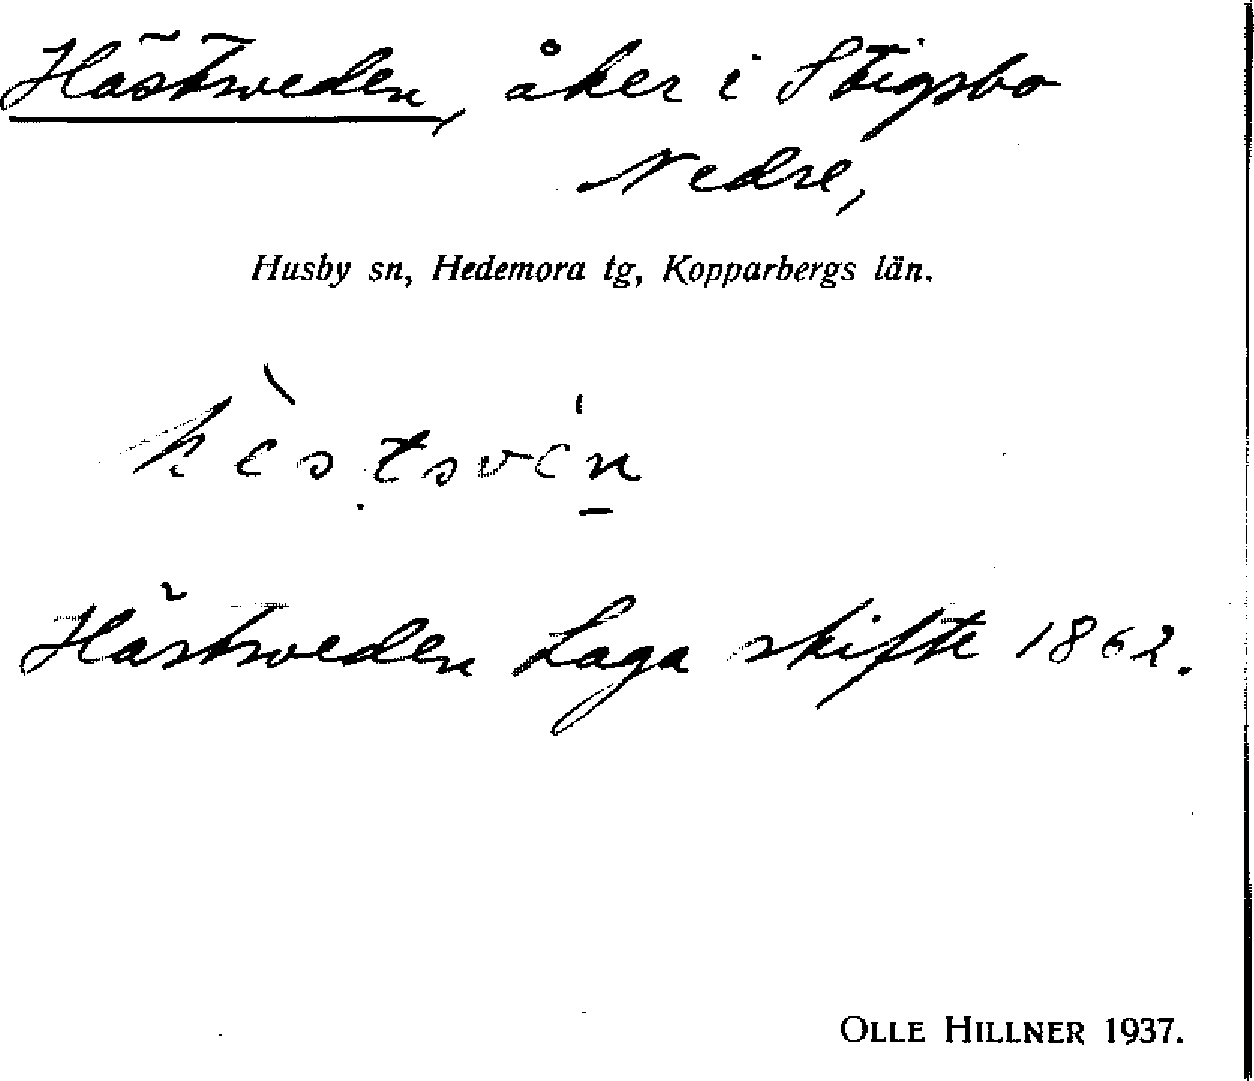 Hästsweden, åker i Stigsbo
Nedre,
Husby sn, Hedemora tg, Kopparbergs län.
Hästsweden Laga skifte 1862.
OLLE HILLNER 1937.